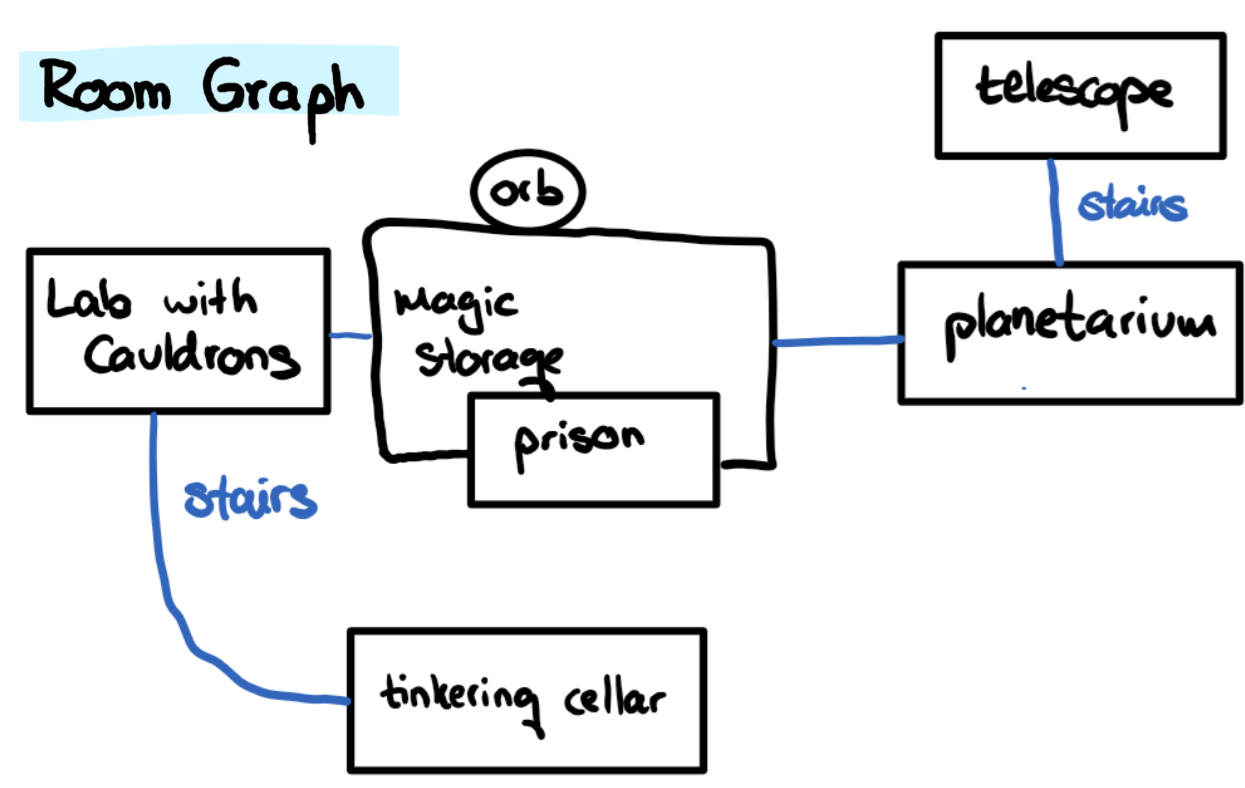 Room Graph
telescope
orb
stairs
Lab with
Cauldrons
Magic
Storage
planetarium
prison
stairs
tinkering cellar